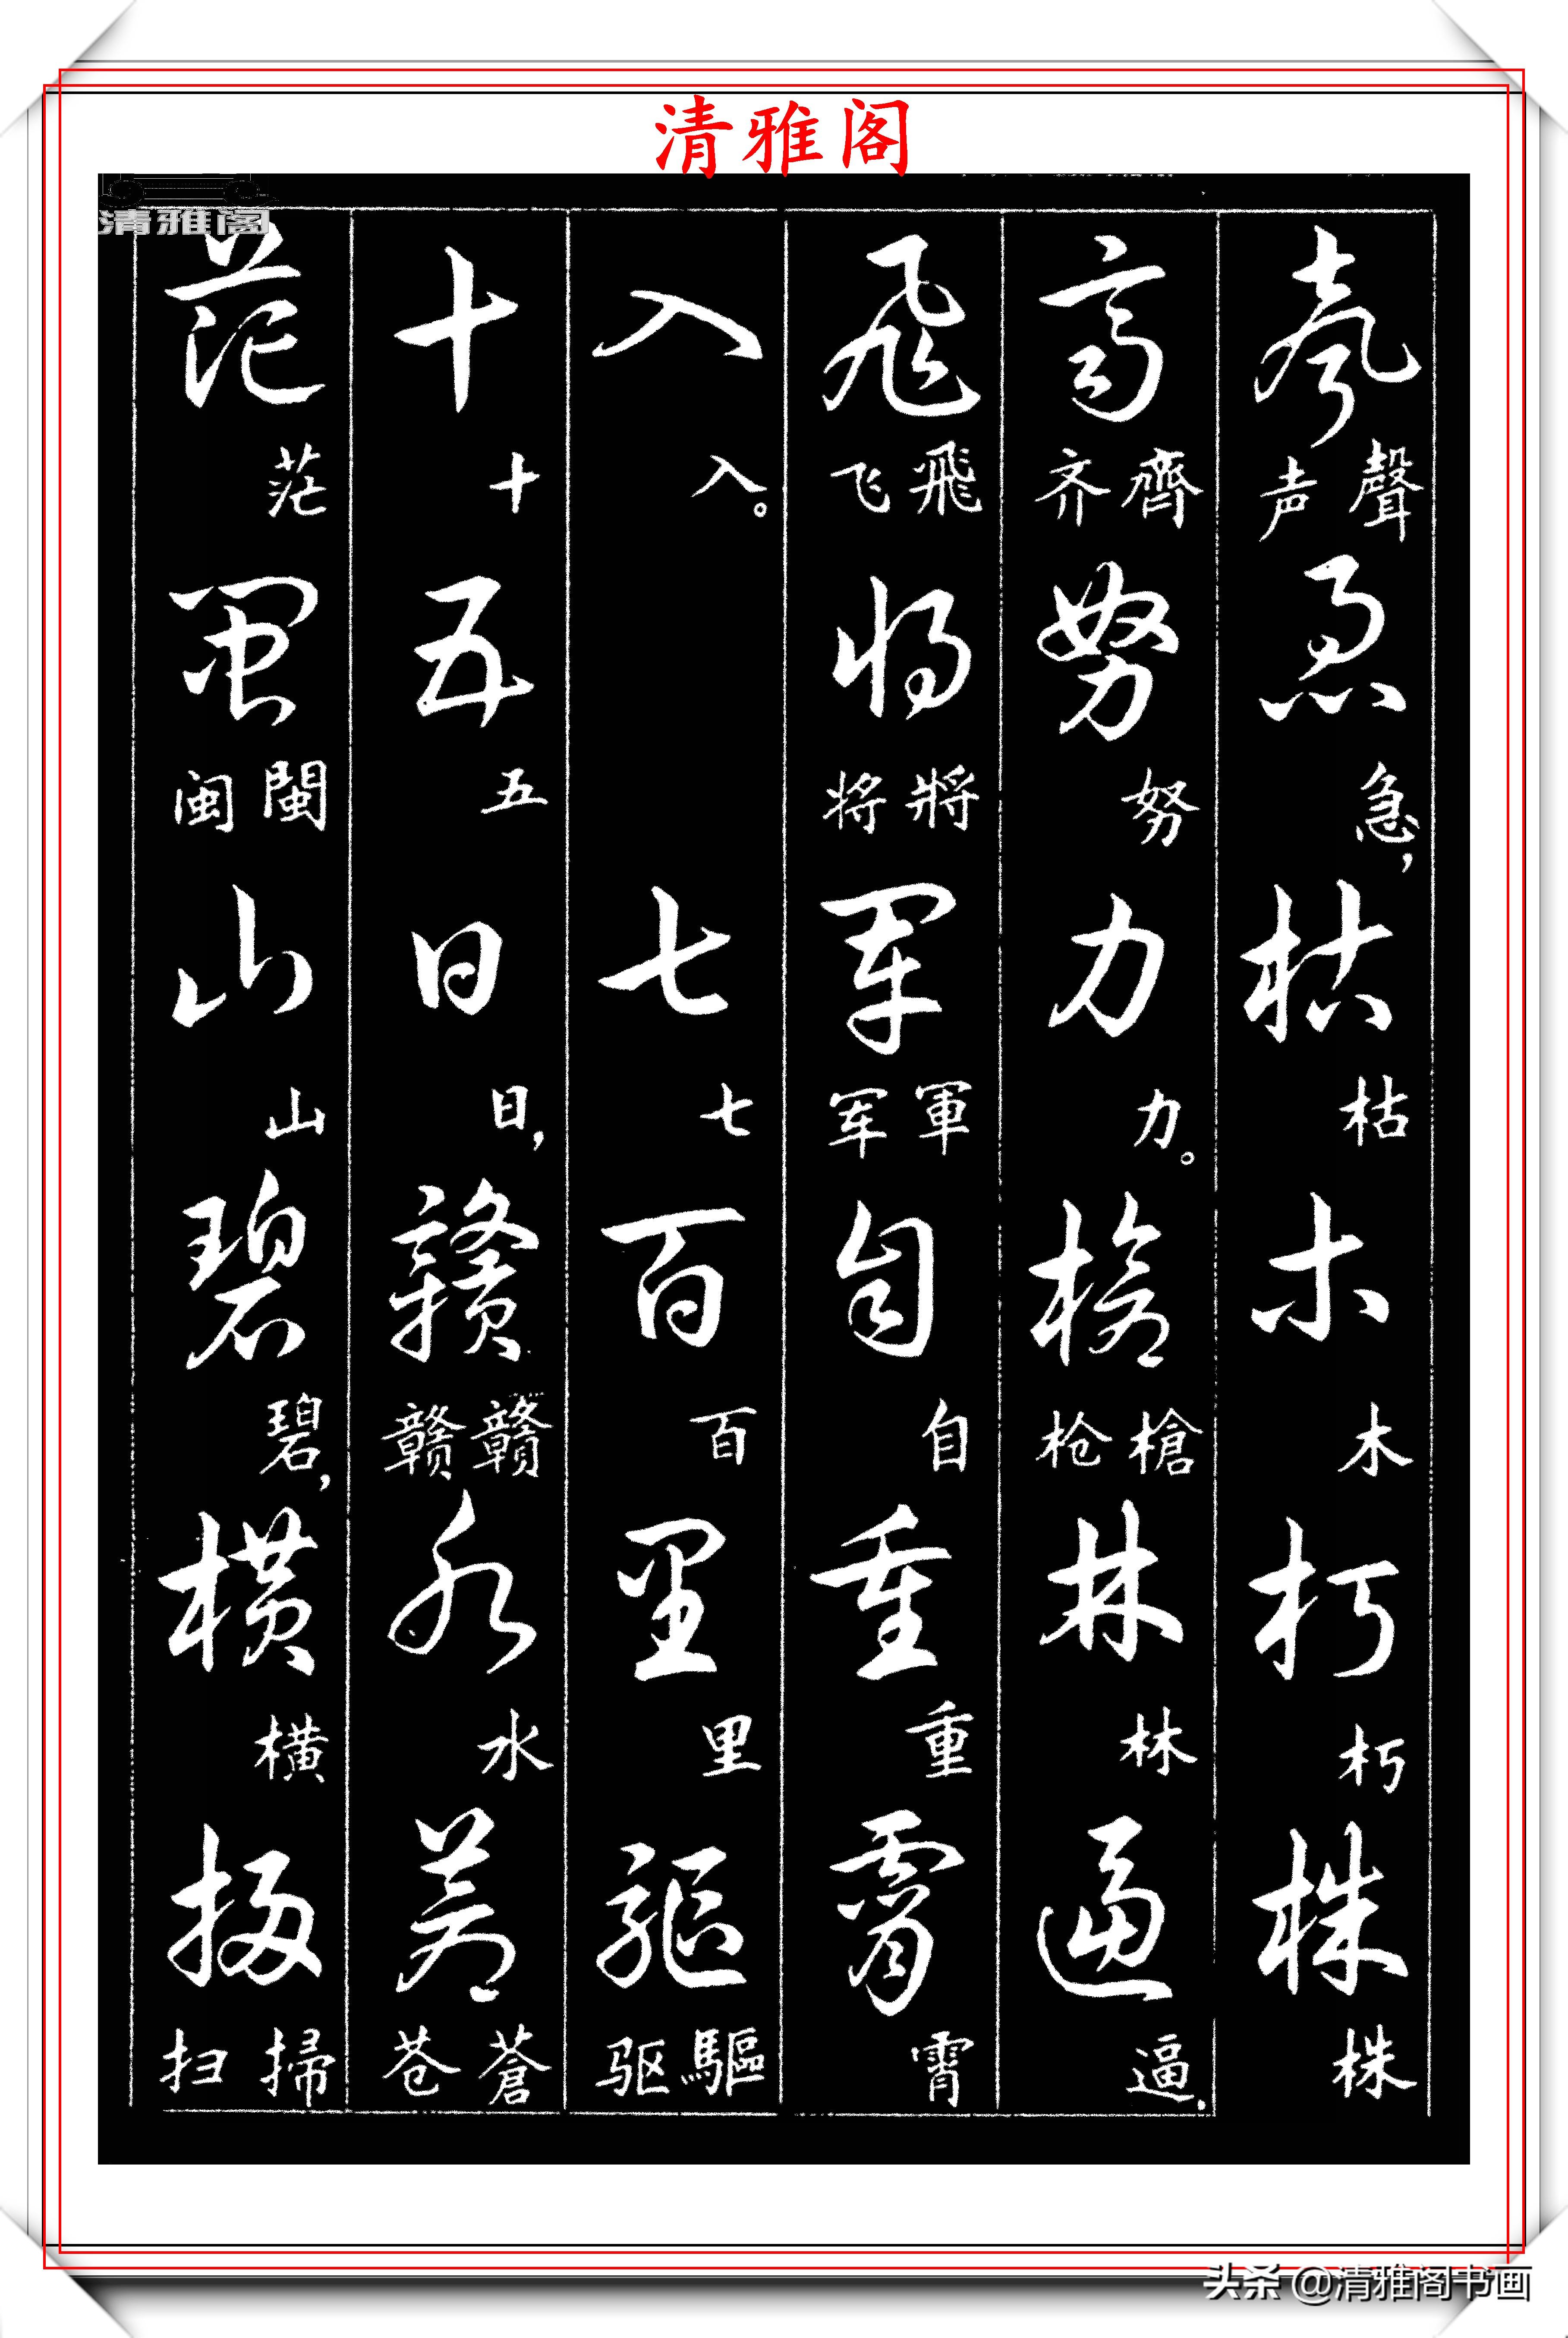 清雅阁
清雅阁
聲声急，枯木朽株
齊齐努力。槍枪林逼，
飛飞將将軍军自重霄
入。七百里驅驱
十五日，贛赣水蒼苍
茫閩闽山碧，横掃扫
头条 @清雅阁书画